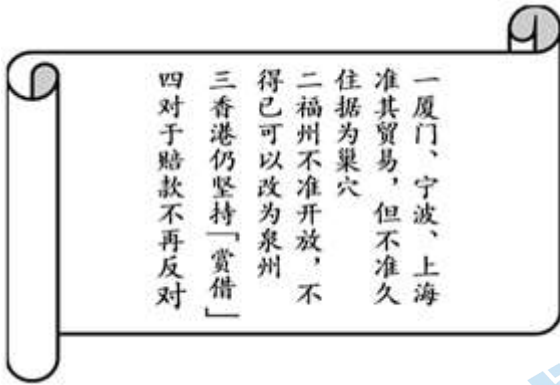 一厦门、宁波、上海
准其贸易，但不准久
住据为巢穴
二福州不准开放，不
得已可以改为泉州
三香港仍坚持「赏借」
四对于赔款不再反对